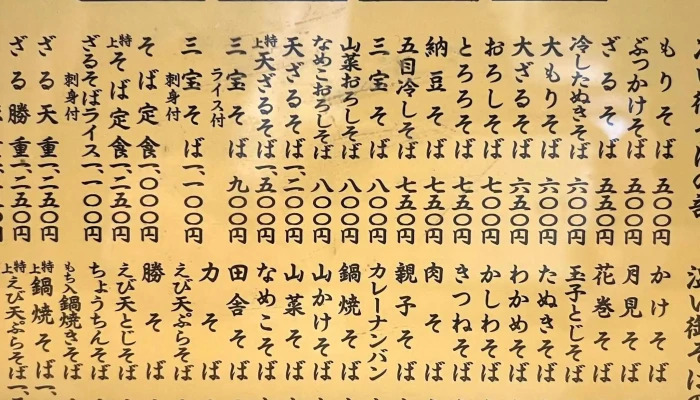 もりそば 五〇〇円
ぶっかけそば 五〇〇円
ざるそば 五五〇円
冷したぬきそば 六〇〇円
大もりそば 六〇〇円
大ざるそば 六五〇円
おろしそば 七〇〇円
とろろそば 七五〇円
納豆そば 七五〇円
五目冷しそば 七五〇円
三宝そば 八〇〇円
山菜おろしそば 八〇〇円
なめこおろしそば 八〇〇円
天ざるそば 一、二〇〇円
特上天ざるそば 一、五〇〇円
三宝そば ライス付 九〇〇円
三宝そば 刺身付 一、一〇〇円
そば定食 一、〇〇〇円
特上そば定食 一、二五〇円
ざるそばライス 刺身付 一、一〇〇円
ざる天重 一、二五〇円
ざる勝重 一、二五〇円
かけそば
月見そば
花巻そば
玉子とじそば
たぬきそば
わかめそば
かしわそば
きつねそば
肉そば
親子そば
カレーナンバン
鍋焼そば
山かけそば
山菜そば
なめこそば
田舎そば
力そば
えび天ぷらそば
勝そば
えび天とじそば
ちょうちんそば
もち入鍋焼きそば
特上鍋焼そば 一、
特上えび天ぷらそば 一、